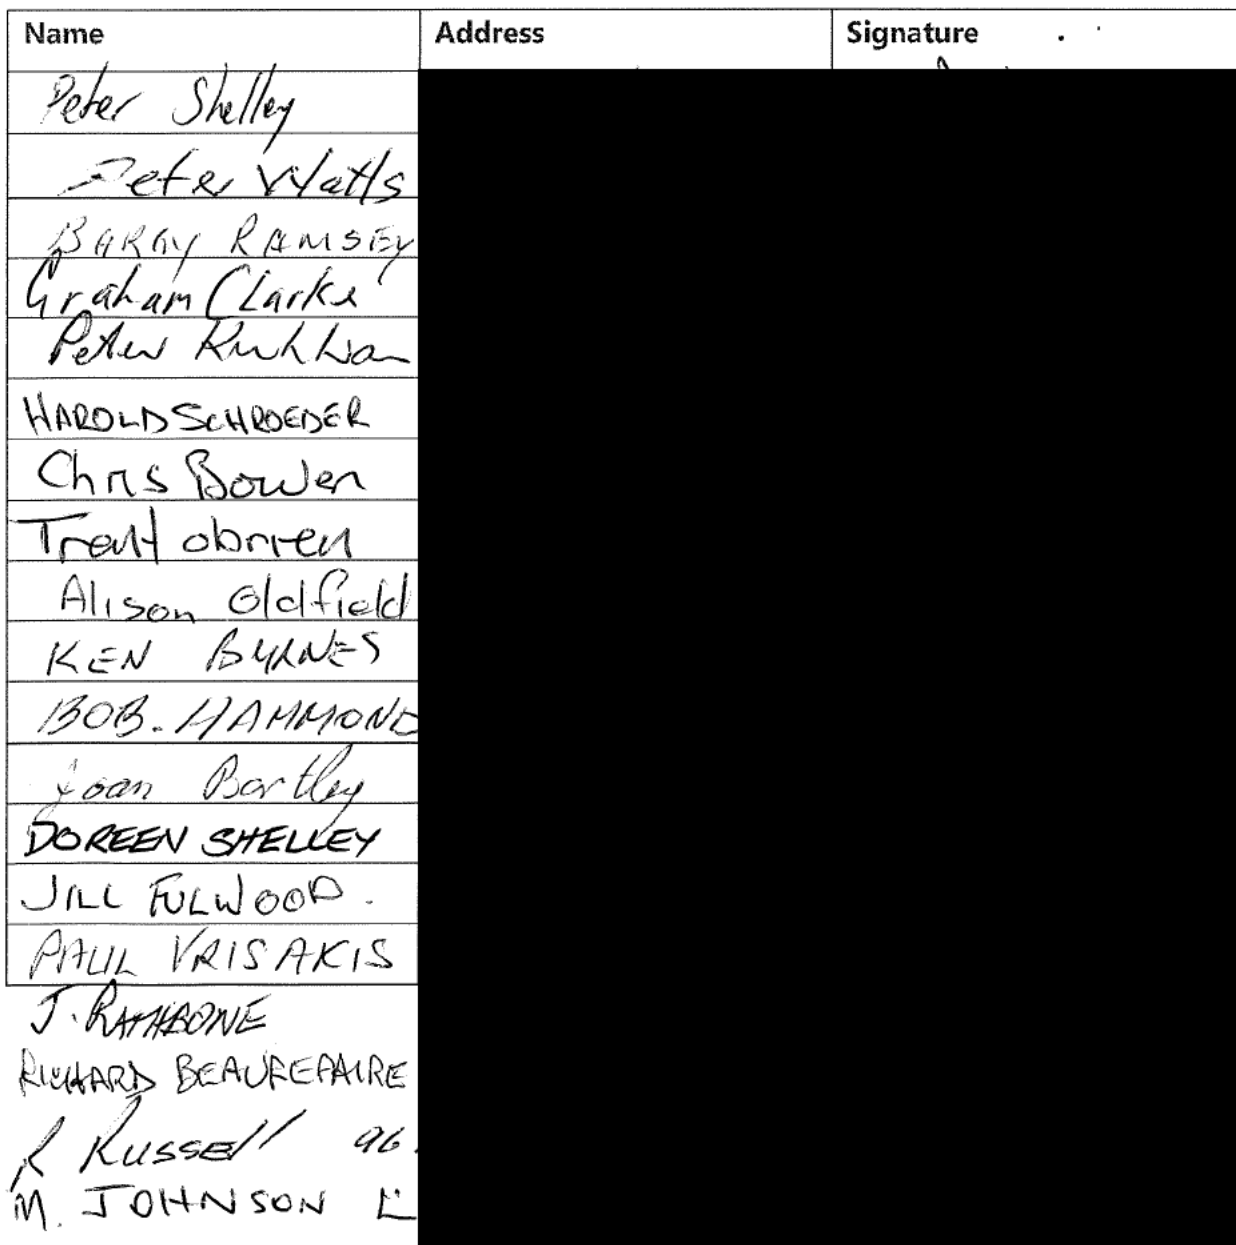 Name Address Signature
Peter Shelley
Peter Watts
BARRY RAMSEY
Graham Clarke
Peter
HAROLD SCHROEDER
Chris Bowen
Trent obrien
Alison Oldfield
KEN BYRNES
BOB. HAMMOND
Joan Bartley
DOREEN SHELLEY
JILL FULWOOD.
PAUL VRISAKIS
J. RATHBONE
RICHARD BEAUREPAIRE
R Russell 96.
M. JOHNSON